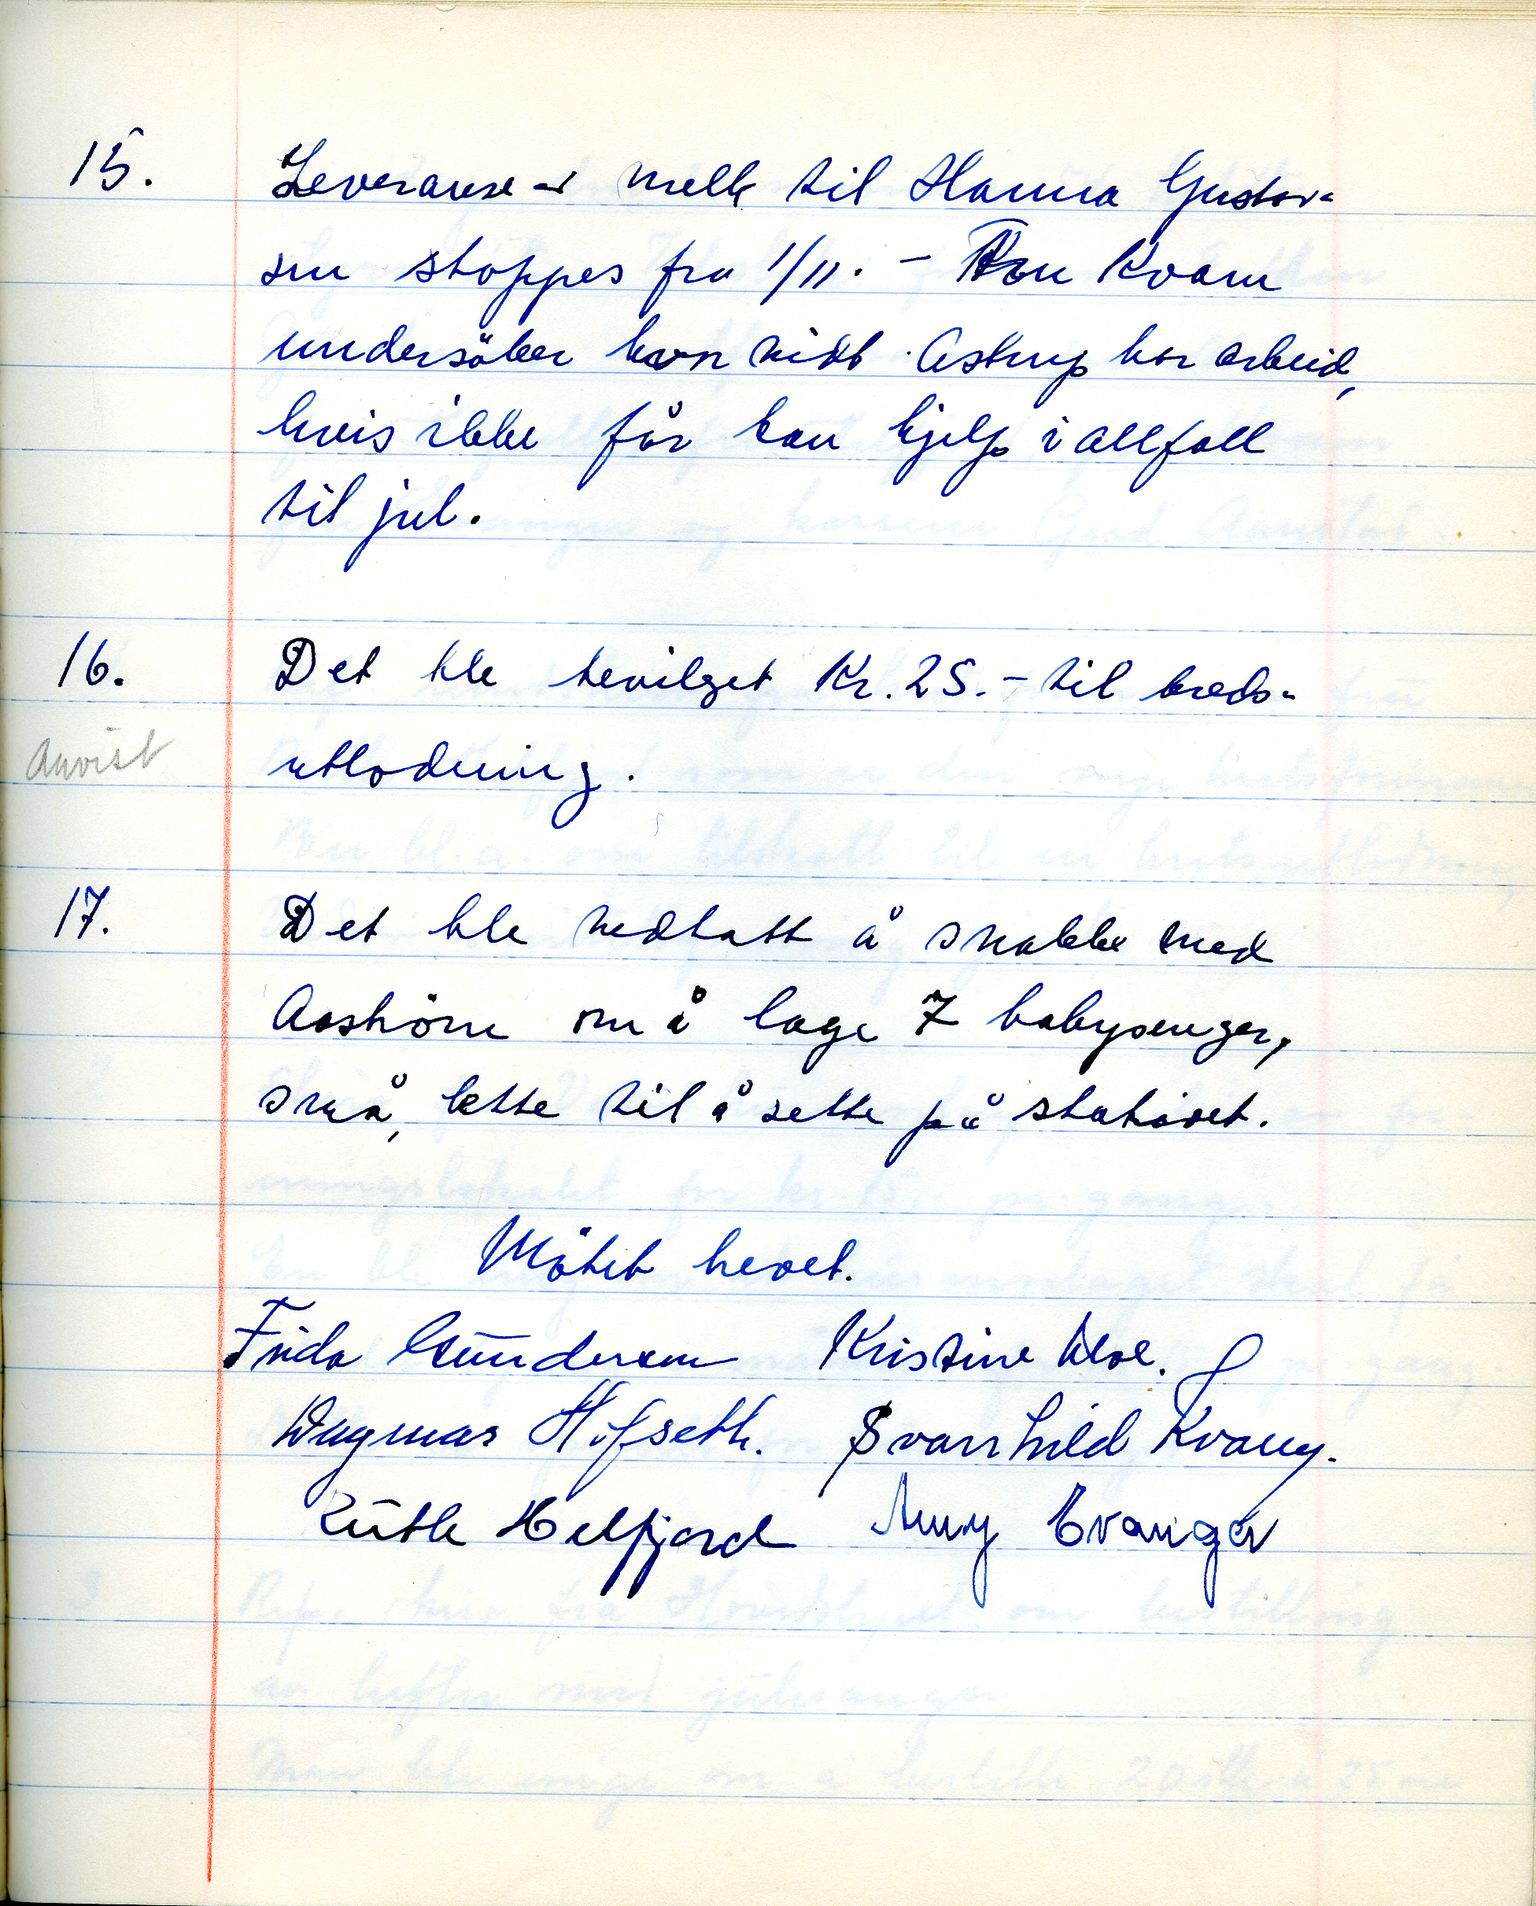 15. Leveranse av melk til Hanna Gustav-
sen stoppes fra 1/11. - Fru Kvam
undersöker hvorvidt Astrup har arbeid,
hvis ikke får han hjelp i allfall
til jul.
16. Det ble bevilget Kr. 25.- til krets-
Anvist utlodning.
17. Det ble vedtatt å snakke med
Aaström om å lage 7 babysenger,
små, lette til å sette på stativet.
Mötet hevet.
Frida Gundersen Kristine Moe.
Dagmar Hofseth. Svanhild Kvam.
Ruth Helfjord Amy Evanger